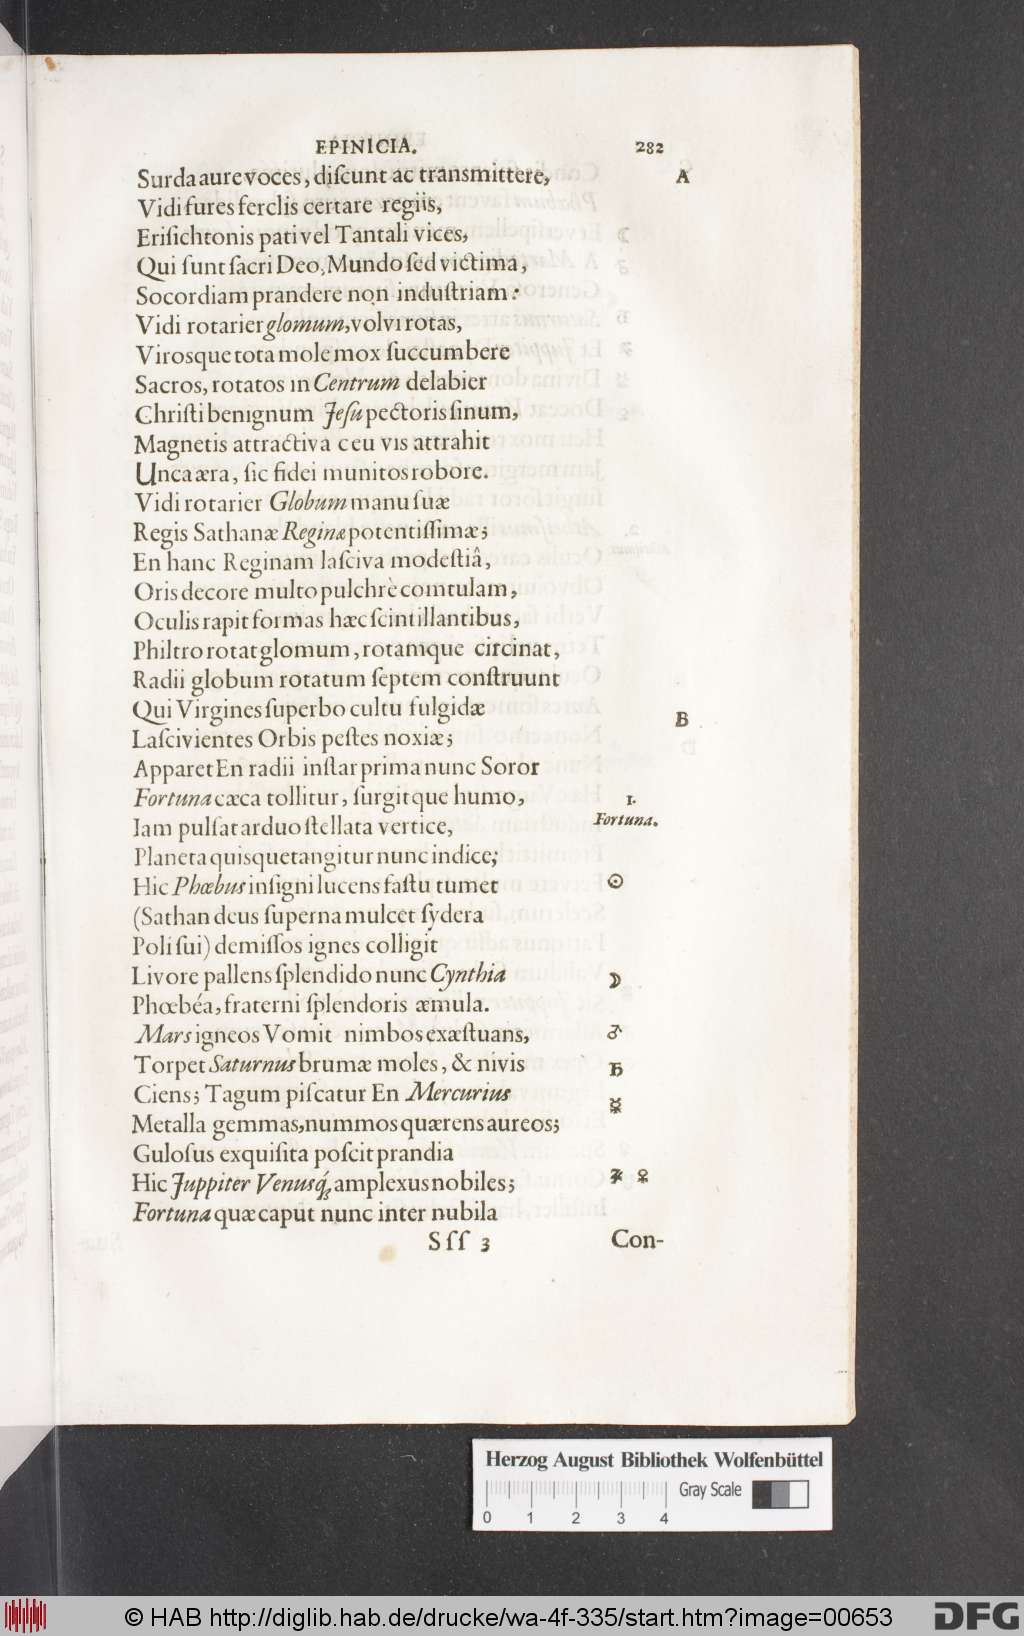 EPINICIA. 282
Surda aure voces, diſcunt ac transmittere, A
Vidi fures ferclis certare regiis,
Eriſichtonis pati vel Tantali vices,
Qui ſunt ſacri Deo, Mundo ſed victima,
Socordiam prandere non induſtriam:
Vidi rotarier glomum, volvi rotas,
Virosque tota mole mox ſuccumbere
Sacros, rotatos in Centrum delabier
Chriſti benignum Jeſu pectoris ſinum,
Magnetis attractiva ceu vis attrahit
Unca æra, ſic fidei munitos robore.
Vidi rotarier Globum manu ſuæ
Regis Sathanæ Reginæ potentiſſimæ;
En hanc Reginam laſciva modeſtiâ,
Oris decore multo pulchrè comtulam,
Oculis rapit formas hæc ſcintillantibus,
Philtro rotat glomum, rotamque circinat,
Radii globum rotatum ſeptem conſtruunt
Qui Virgines ſuperbo cultu fulgidæ
B
Laſcivientes Orbis peſtes noxiæ;
Apparet En radii inſtar prima nunc Soror
Fortuna cæca tollitur, ſurgitque humo, 1.
Fortuna.
Iam pulſat arduo ſtellata vertice,
Planeta quisque tangitur nunc indice;
Hic Phœbus inſigni lucens faſtu tumet ☉
(Sathan deus ſuperna mulcet ſydera
Poli ſui) demiſſos ignes colligit
Livore pallens ſplendido nunc Cynthia ☽
Phœbéa, fraterni ſplendoris æmula.
Mars igneos Vomit nimbos exæſtuans, ♂
Torpet Saturnus brumæ moles, & nivis ♄
Ciens; Tagum piſcatur En Mercurius ☿
Metalla gemmas, nummos quærens aureos;
Guloſus exquiſita poſcit prandia
Hic Juppiter Venusq́; amplexus nobiles; ♃ ♀
Fortuna quæ caput nunc inter nubila
Sſſ 3 Con-
Herzog August Bibliothek Wolfenbüttel
Gray Scale
0 1 2 3 4
© HAB http://diglib.hab.de/drucke/wa-4f-335/start.htm?image=00653 DFG